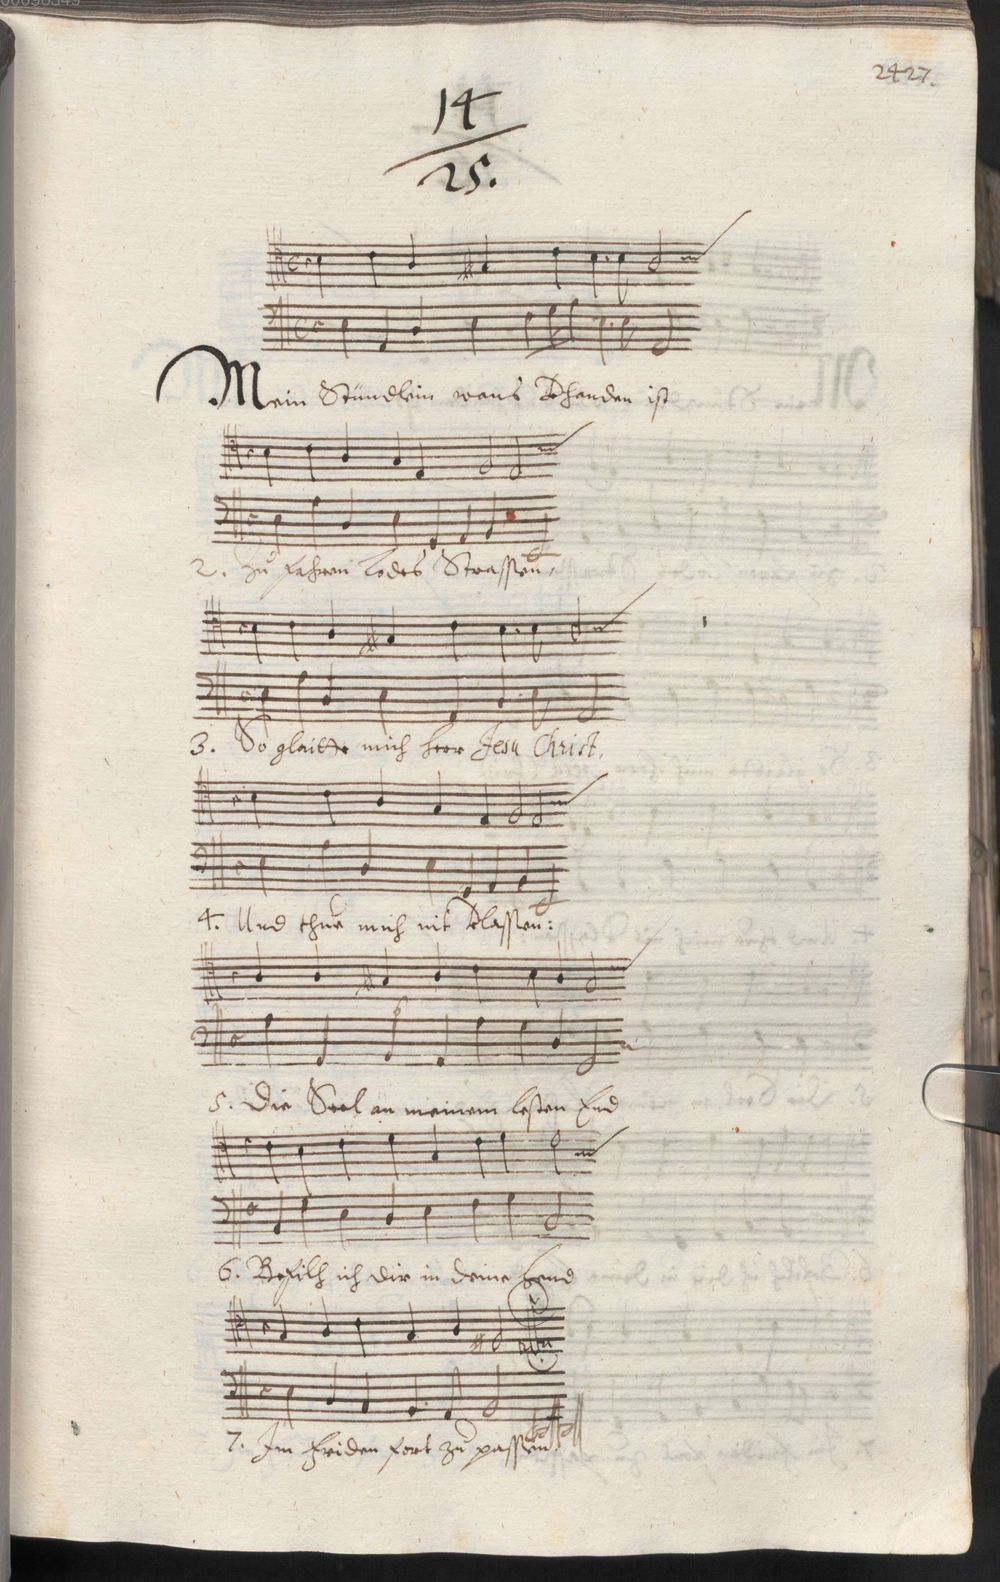 2427.
14
25.
Mein Stündlein wans Vhanden ist
2. Zu fahren todes Strassen,
3. So glaitte mich herr Jesu Christ,
4. Und thue mich nit Vlassen:
5. Die Seel an meinem lesten End
6. Befilh ich dir in deine hend
7. Im friden fort zu passen.